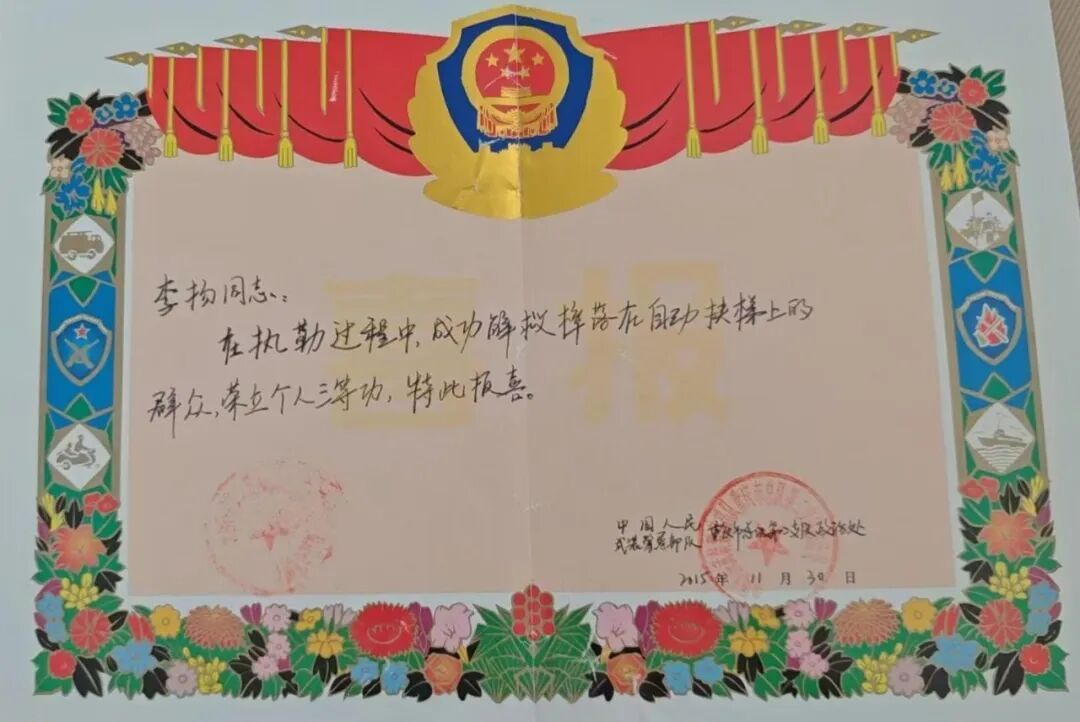 喜报
李扬同志：
在执勤过程中，成功解救掉落在自动扶梯上的
群众，荣立个人三等功，特此报喜。
中国人民
武装警察部队 重庆市总队第二支队政治处
2015年11月30日